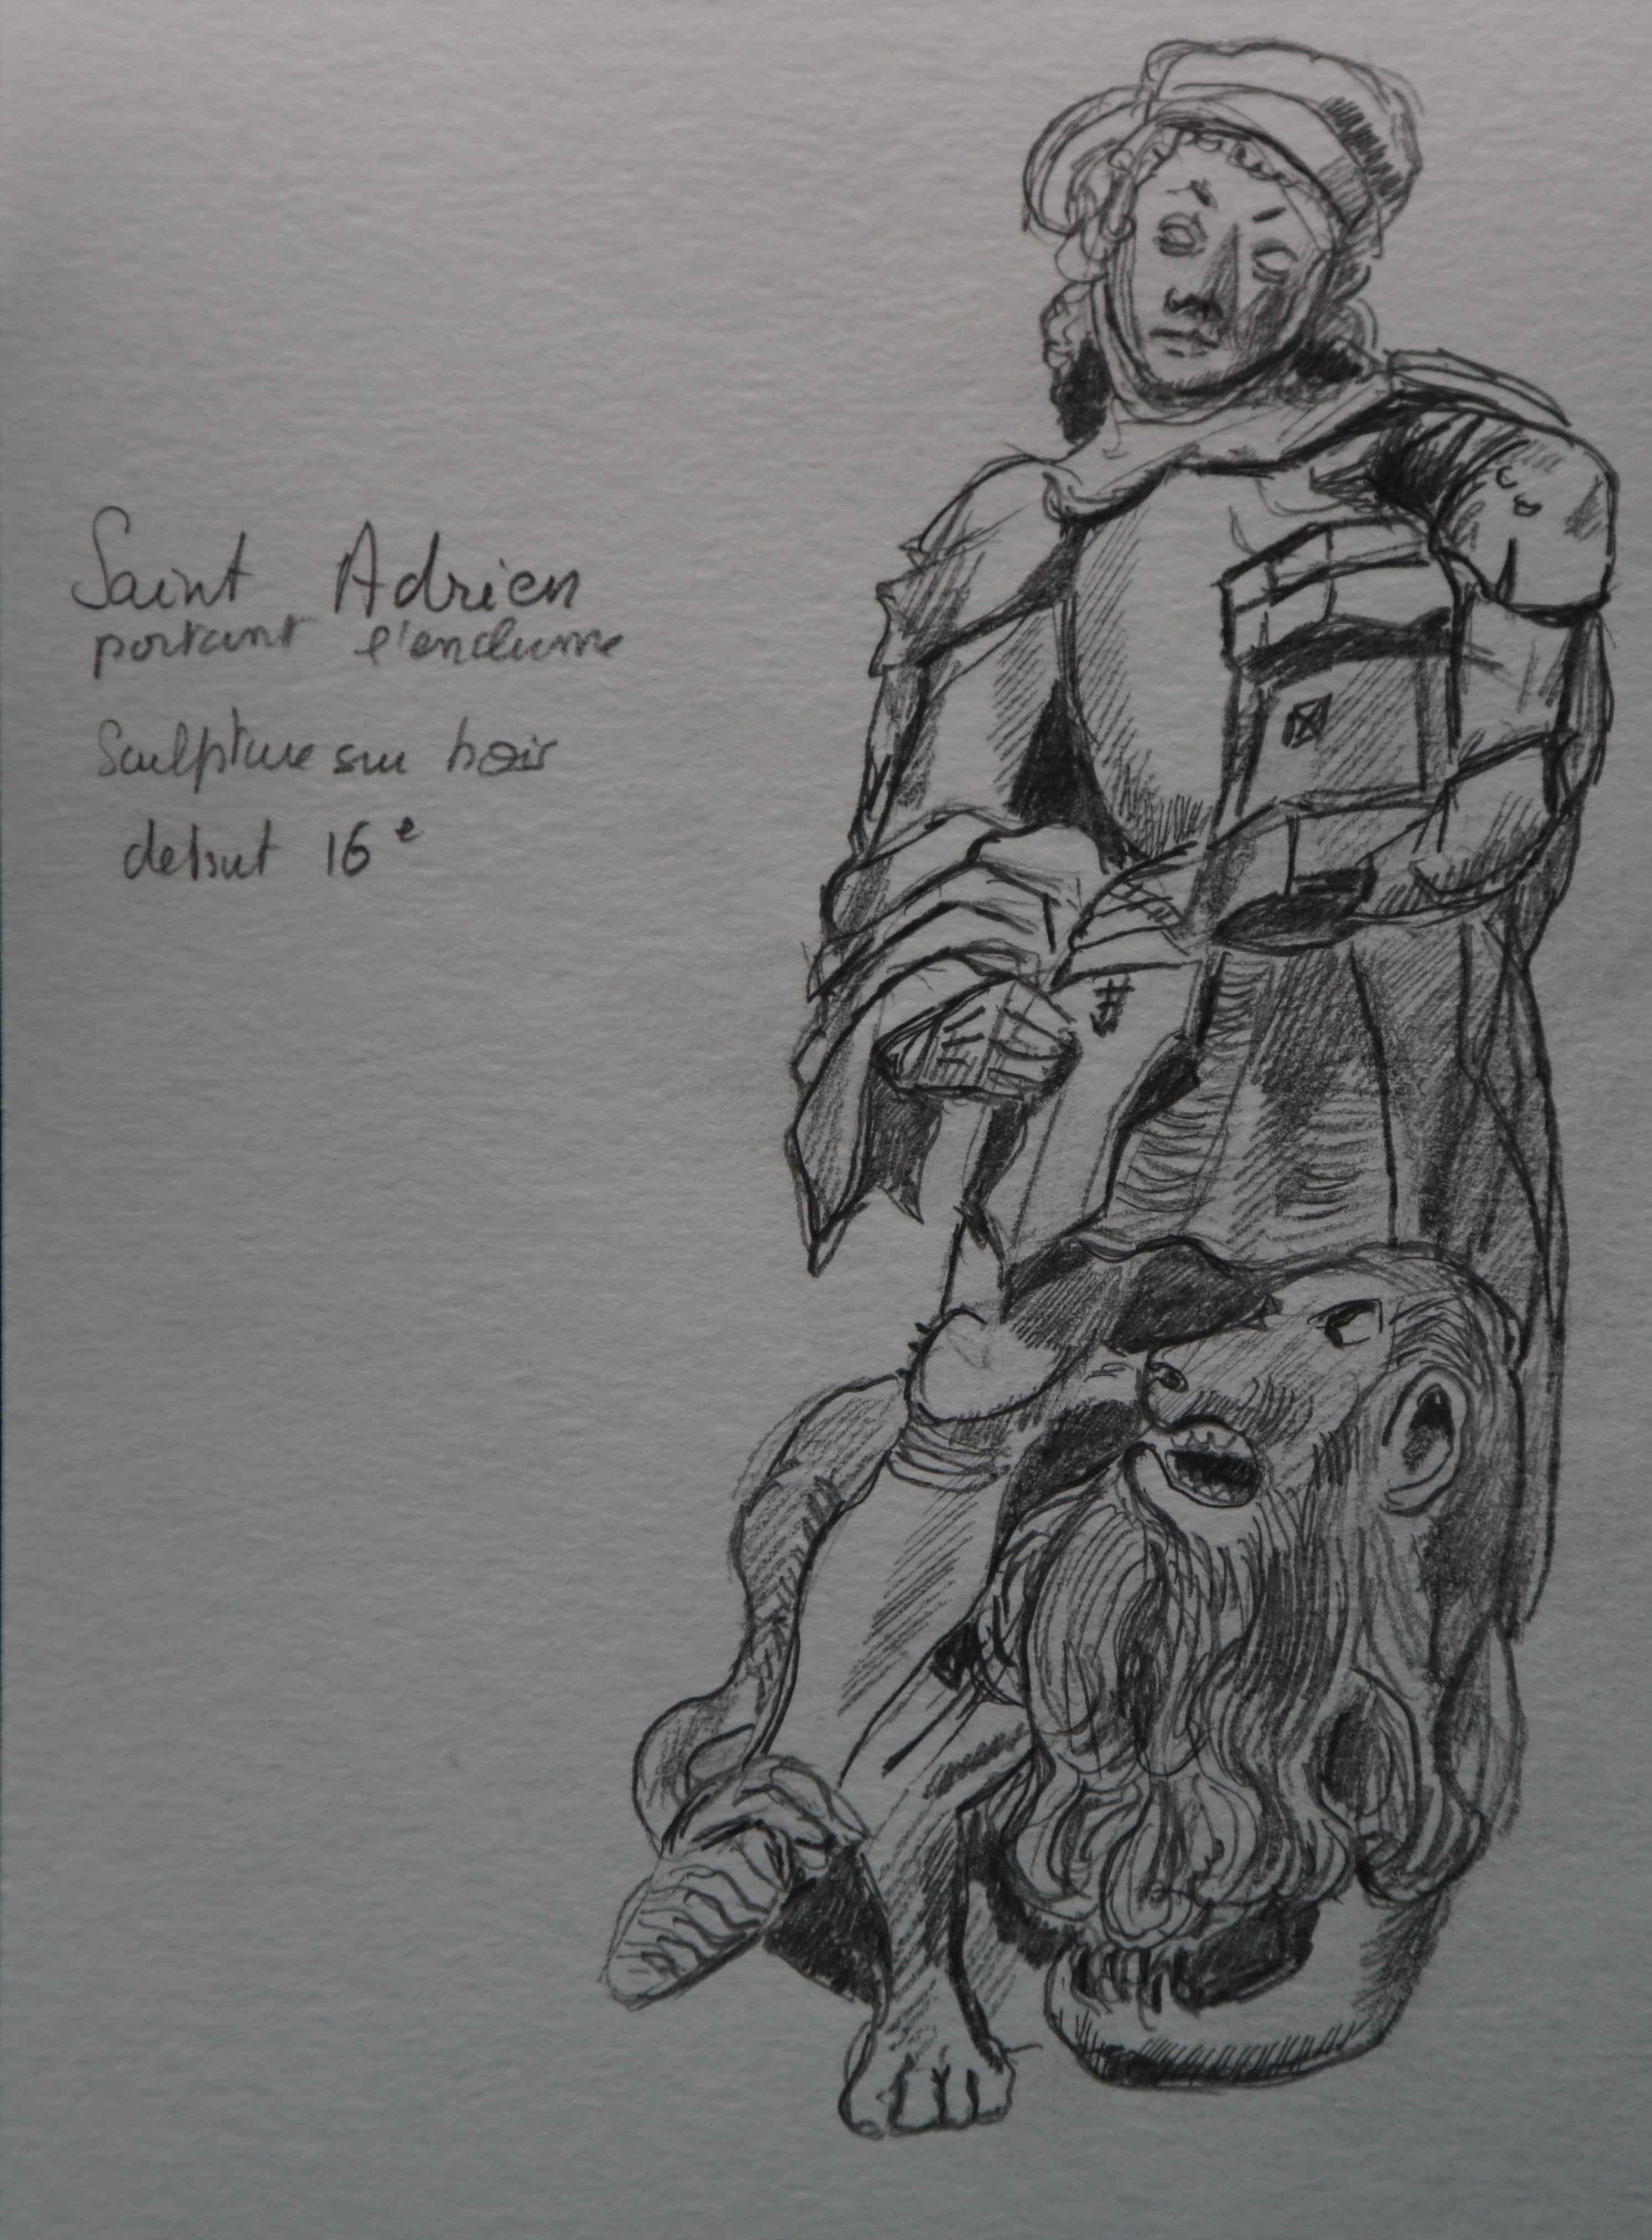 Saint Adrien
portant l'enclume
Sculpture sur bois
debut 16e